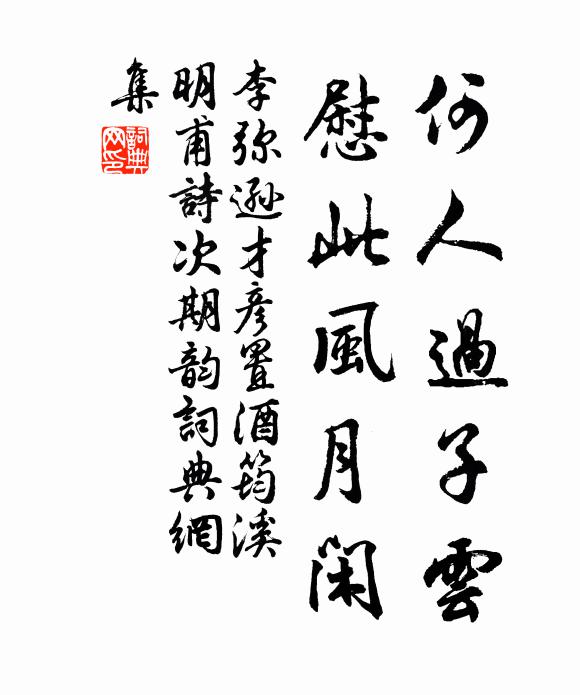 何人過子雲
慰此風月閑
李弥遜才彥置酒筠溪
明甫詩次期韵詞典網
集
詞典網印